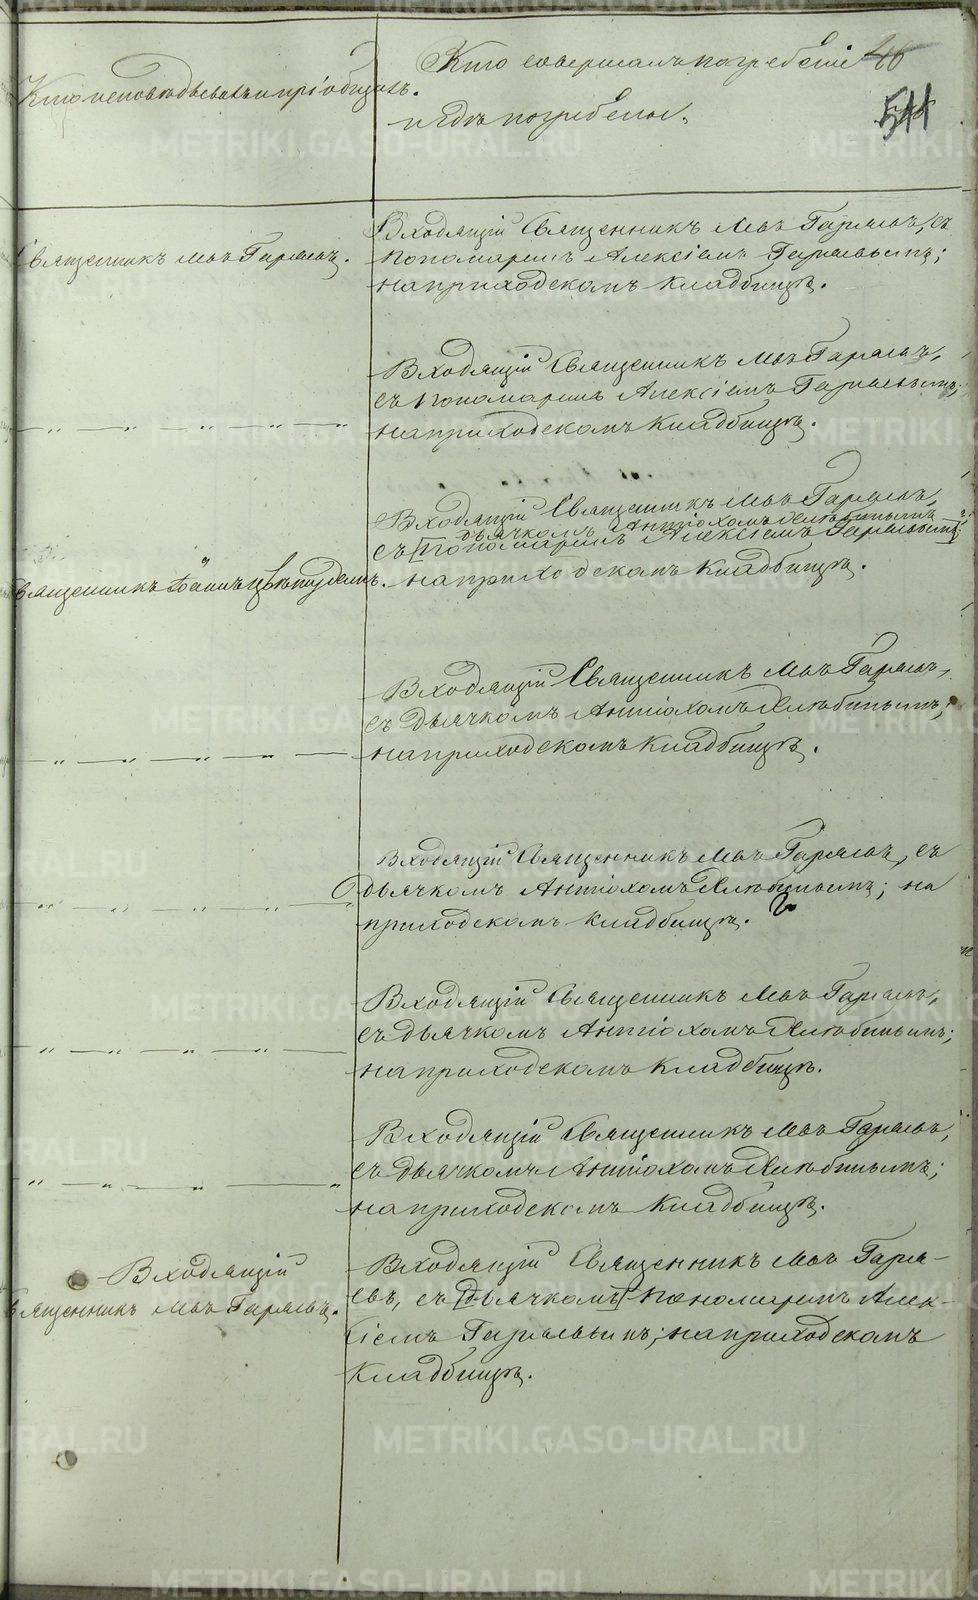 Кто исповѣдывалъ и пріобщалъ.
Кто совершалъ погребеніе
и гдѣ погребены.
46
511
Священникъ Левъ Гаряевъ.
Входящій Священникъ Левъ Гаряевъ, съ
Пономаремъ Алексіемъ Гаряевымъ;
на приходскомъ кладбищѣ.
Входящій Священникъ Левъ Гаряевъ,
съ Пономаремъ Алексіемъ Гаряевымъ;
на приходскомъ кладбищѣ.
— „ — „ — „ — „ — „
Входящій Священникъ Левъ Гаряевъ,
дьячкомъ Антіохомъ
съ [Пономаремъ Алексіемъ Гаряевымъ];
на приходскомъ кладбищѣ.
Священникъ Іоаннъ
Входящій Священникъ Левъ Гаряевъ,
съ Дьячкомъ Антіохомъ
на приходскомъ кладбищѣ.
— „ — „ — „ — „ —
Входящій Священникъ Левъ Гаряевъ, съ
Дьячкомъ Антіохомъ на
приходскомъ кладбищѣ.
— „ — „ — „ — „ — „
Входящій Священникъ Левъ Гаряевъ,
съ дьячкомъ Антіохомъ
на приходскомъ кладбищѣ.
— „ — „ — „ — „ — „ —
Входящій Священникъ Левъ Гаряевъ,
съ дьячкомъ Антіохомъ
на приходскомъ кладбищѣ.
„ — „ — „ — „
Входящій
Священникъ Левъ Гаряевъ.
Входящій Священникъ Левъ Гаря-
евъ, съ [дьячкомъ] Пономаремъ Алек-
сіемъ Гаряевымъ; на приходскомъ
кладбищѣ.